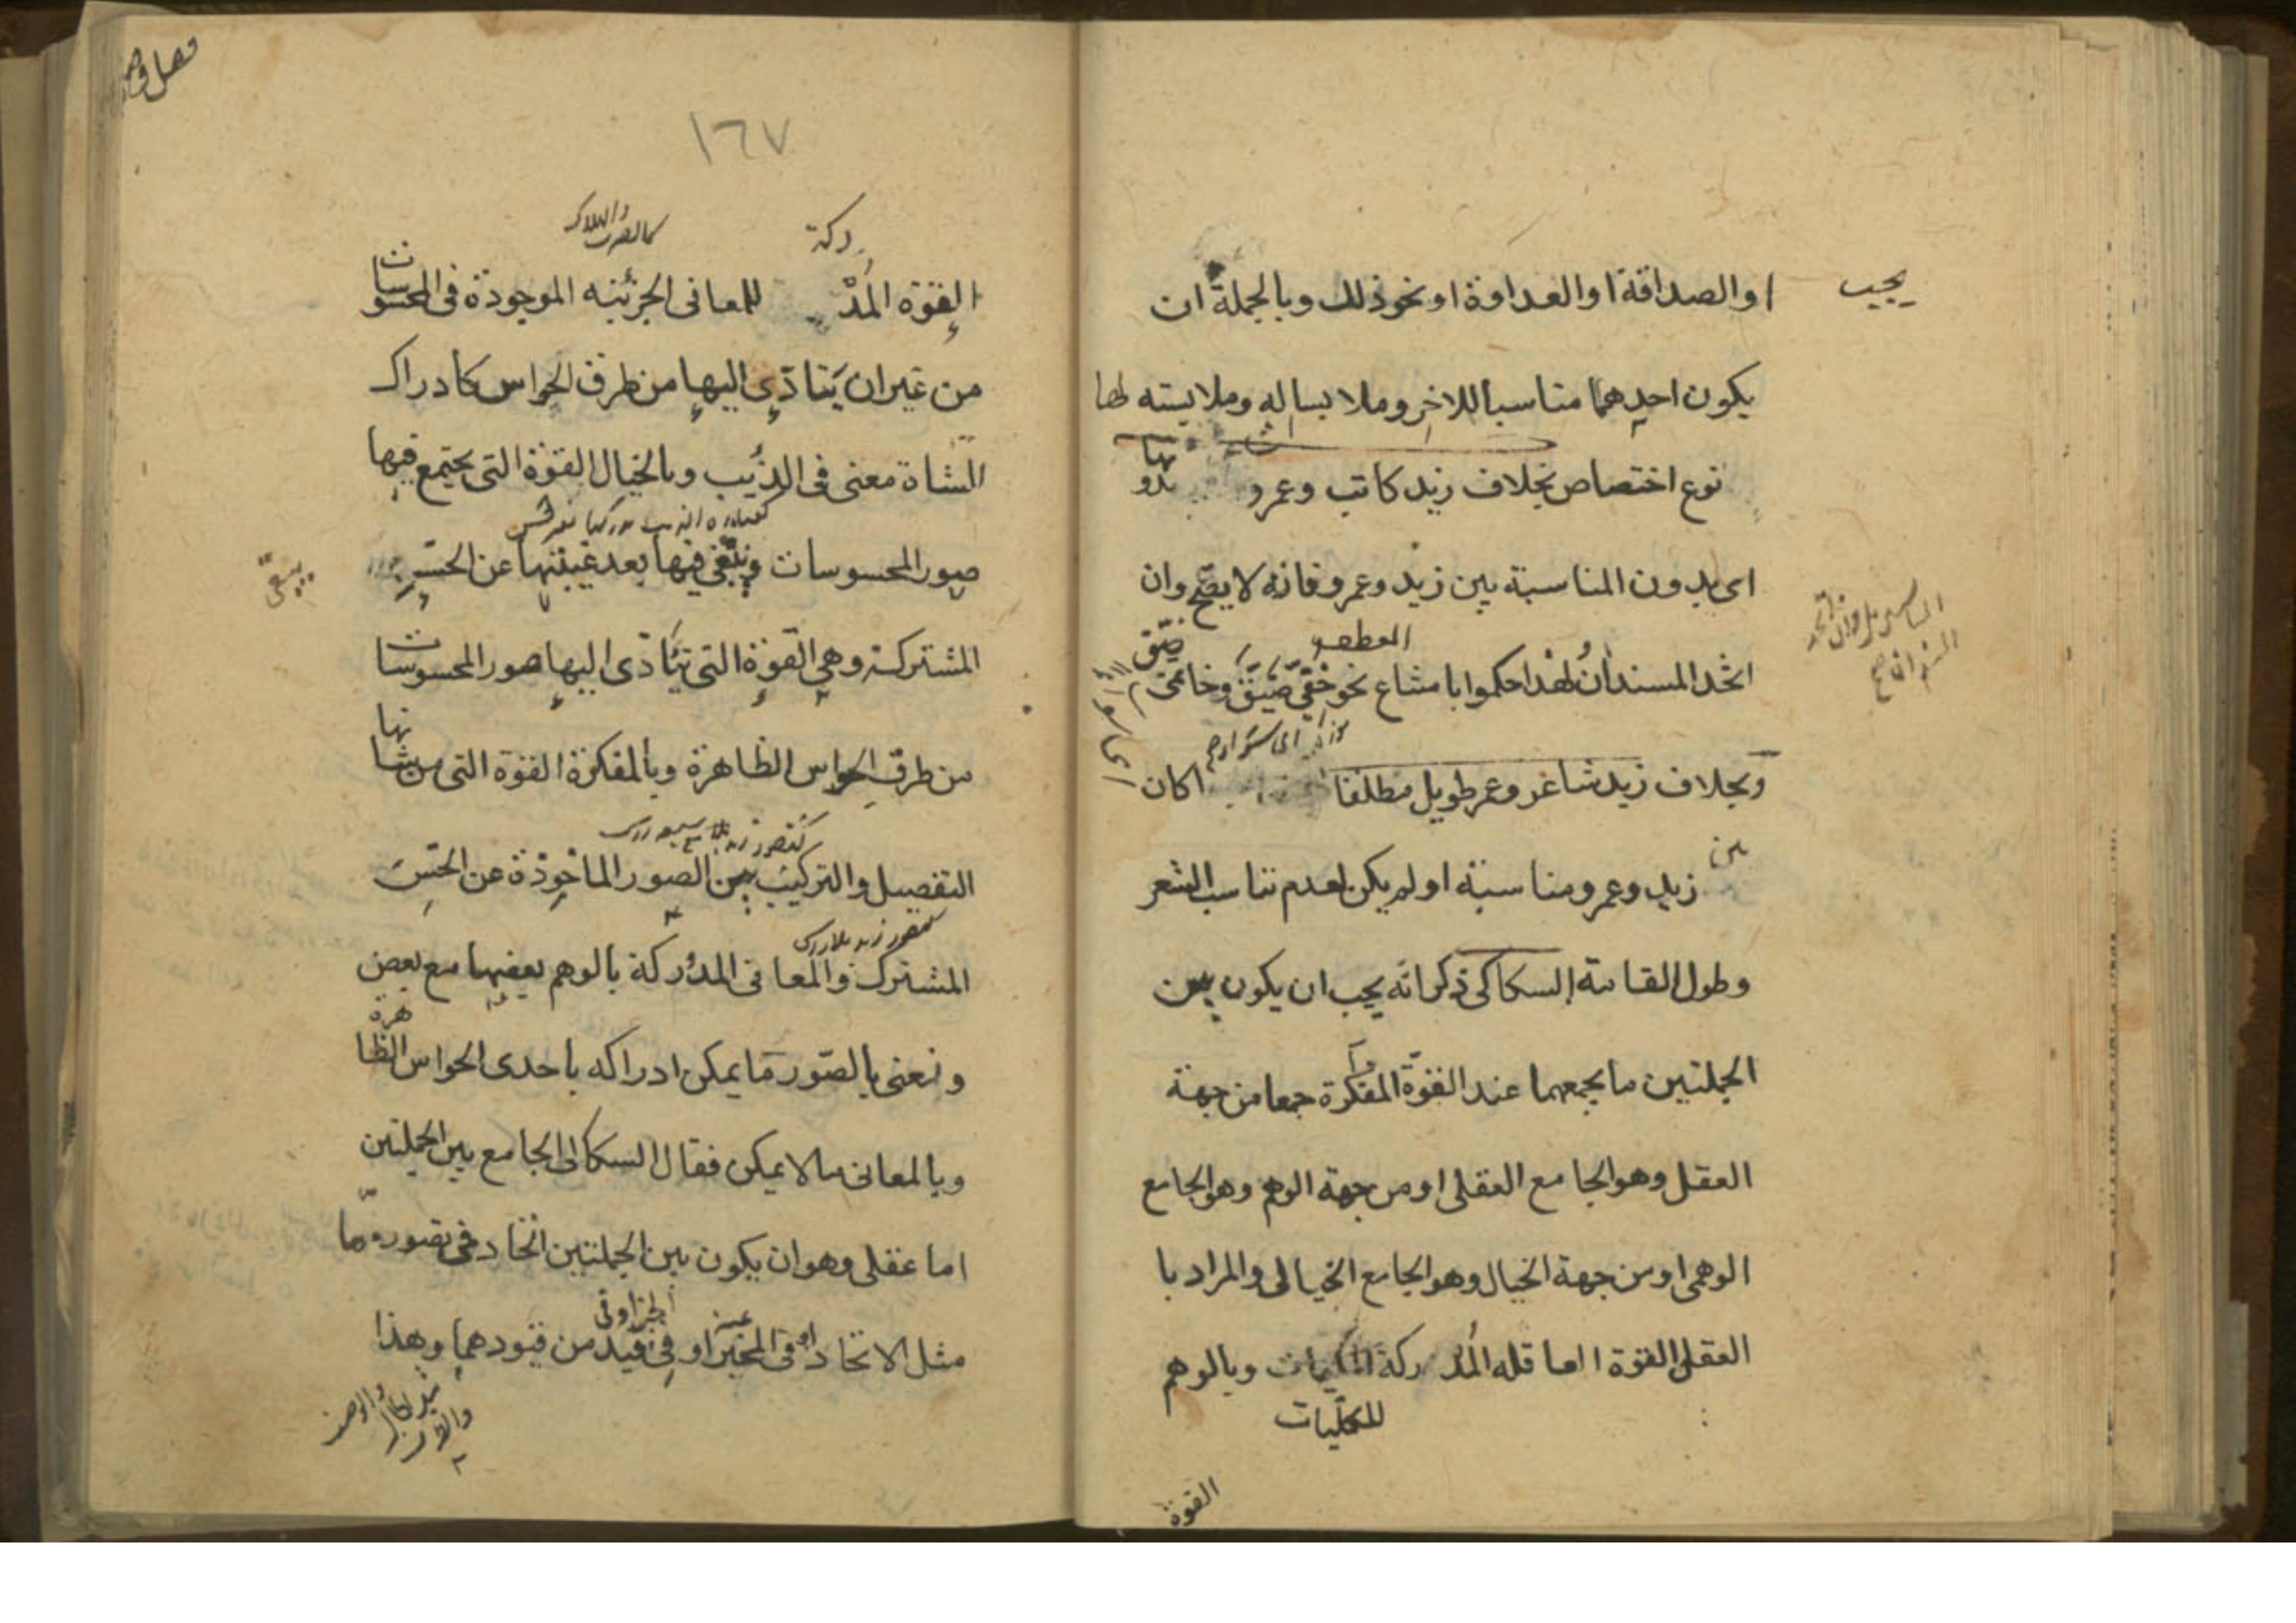 يجب
او الصداقة او العداوة او نحو ذلك وبالجملة ان
يكون احدهما مناسبا للاخر وملابسا له وملابسته لها
نوع اختصاص بخلاف زيد كاتب وعمرو بدونها
اى بدون المناسبة بين زيد وعمرو فانه لا يصح وان
اتحد المسندان لهذا حكموا بامتناع نحو خفى ضيق وخاتمى ضيق
وبخلاف زيد شاعر وعمر طويل مطلقا اكان
بين زيد وعمرو مناسبة او لم يكن لعدم تناسب الشعر
وطول القامة السكاكى ذكر انه يجب ان يكون بين
الجملتين ما يجمعهما عند القوة المفكرة جمعا من جهة
العقل وهو الجامع العقلى او من جهة الوهم وهو الجامع
الوهمى او من جهة الخيال وهو الجامع الخيالى والمراد با
العقل القوة العاقله المدركة للكليات وبالوهم
القوة
١٦٧
القوة المدركة للمعانى الجزئيه الموجودة فى المحسوسات
من غير ان يتادى اليها من طرق الحواس كادراك
الشاة معنى فى الذيب وبالخيال القوة التى يجتمع فيها
صور المحسوسات وتبقى فيها بعد غيبتها عن الحس
المشترك وهى القوة التى يتادى اليها صور المحسوسات
من طرق الحواس الظاهرة وبالمفكرة القوة التى من شانها
التفصيل والتركيب بين الصور الماخوذة عن الحس
المشترك والمعانى المدركة بالوهم بعضها مع بعض
ونعنى بالصور ما يمكن ادراكه باحدى الحواس الظاهرة
وبالمعانى ما لا يمكن فقال السكاكى الجامع بين الجملتين
اما عقلى وهو ان يكون بين الجملتين اتحاد فى تصور ما
مثل الاتحاد فى المخبر عنه او فى الخبر او فى قيد من قيودهما وهذا